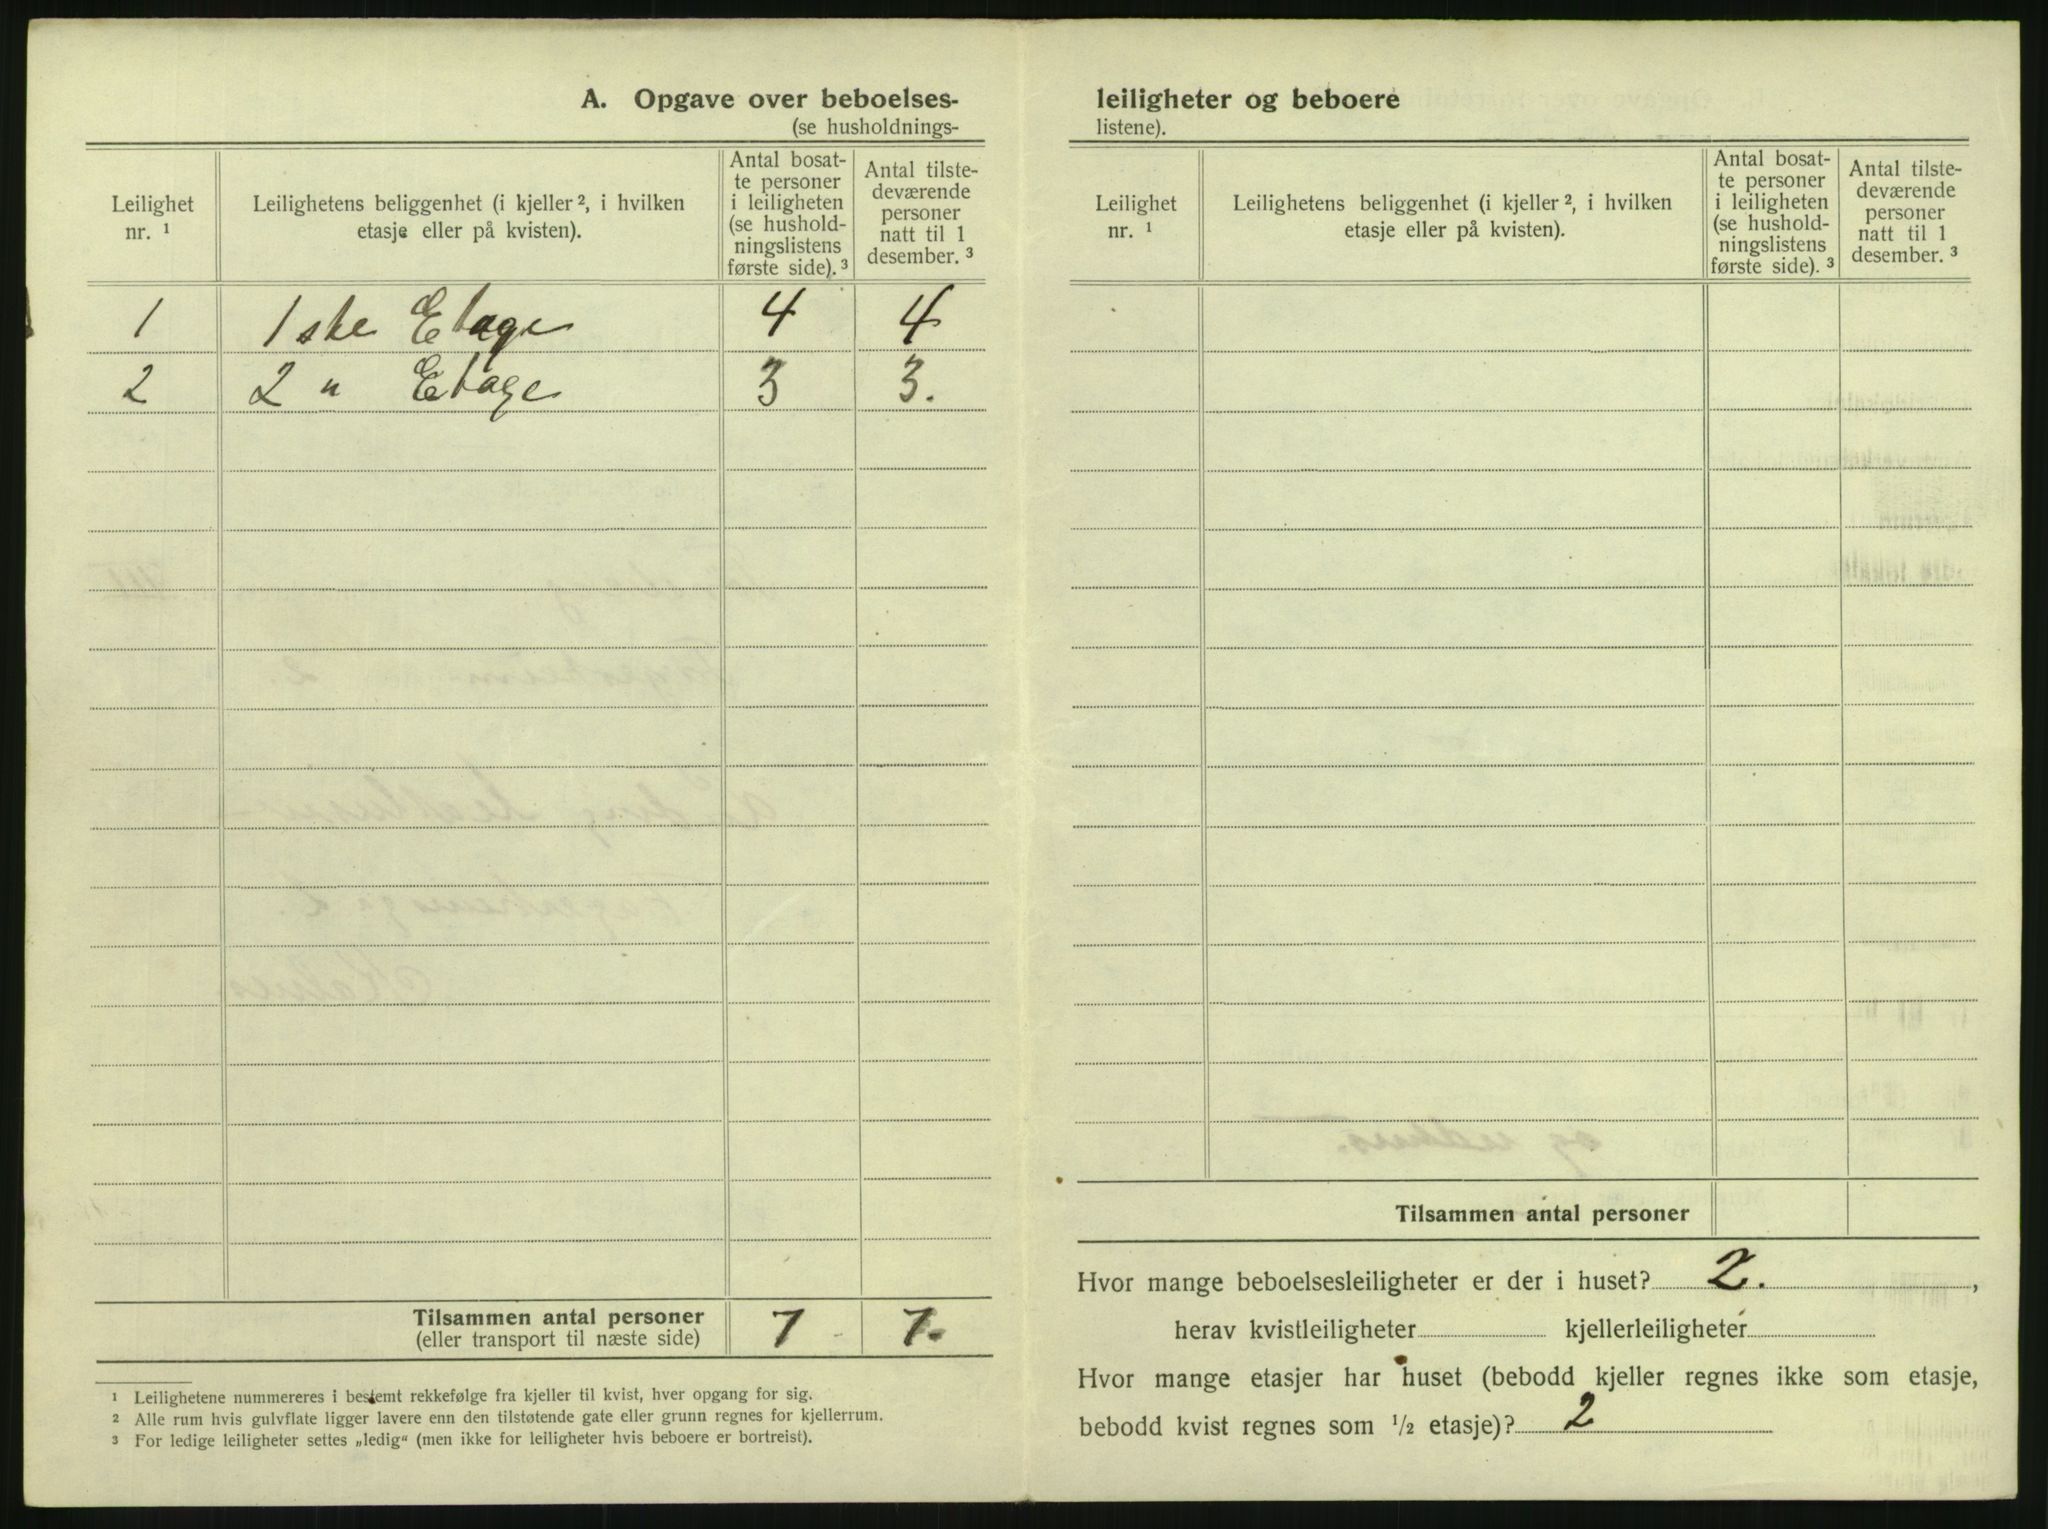 A. Opgave over beboelses-
(se husholdnings-
Leilighet nr. ¹
Leilighetens beliggenhet (i kjeller ², i hvilken etasje eller på kvisten).
Antal bosat-
te personer
i leiligheten
(se hushold-
ningslistens
første side). ³
Antal tilste-
deværende
personer
natt til 1
desember. ³
1 1ste Etage 4 4
2 2 " Etage 3 3.
Tilsammen antal personer 7 7.
(eller transport til næste side)
¹ Leilighetene nummereres i bestemt rekkefølge fra kjeller til kvist, hver opgang for sig.
² Alle rum hvis gulvflate ligger lavere enn den tilstøtende gate eller grunn regnes for kjellerrum.
³ For ledige leiligheter settes „ledig“ (men ikke for leiligheter hvis beboere er bortreist).
leiligheter og beboere
listene).
Leilighet nr. ¹
Leilighetens beliggenhet (i kjeller ², i hvilken etasje eller på kvisten).
Antal bosat-
te personer
i leiligheten
(se hushold-
ningslistens
første side). ³
Antal tilste-
deværende
personer
natt til 1
desember. ³
Tilsammen antal personer
Hvor mange beboelsesleiligheter er der i huset? 2. ,
herav kvistleiligheter kjellerleiligheter
Hvor mange etasjer har huset (bebodd kjeller regnes ikke som etasje,
bebodd kvist regnes som ½ etasje)? 2